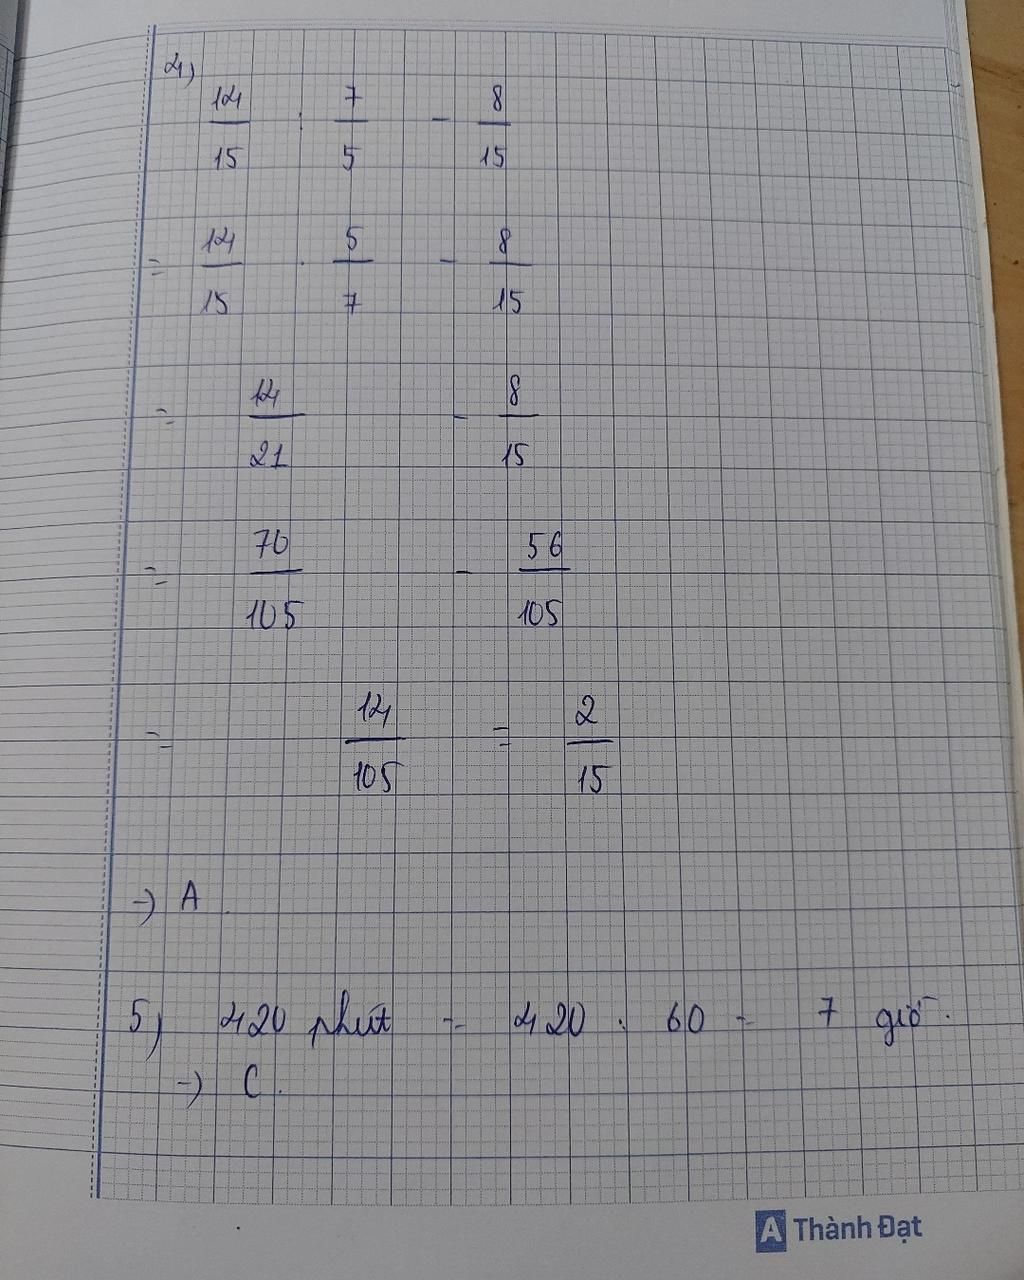 4)
14/15 : 7/5 - 8/15
= 14/15 . 5/7 - 8/15
= 14/21 - 8/15
= 70/105 - 56/105
= 14/105 = 2/15
-) A.
5) 420 phút = 420 : 60 = 7 giờ.
-) C.
A Thành Đạt